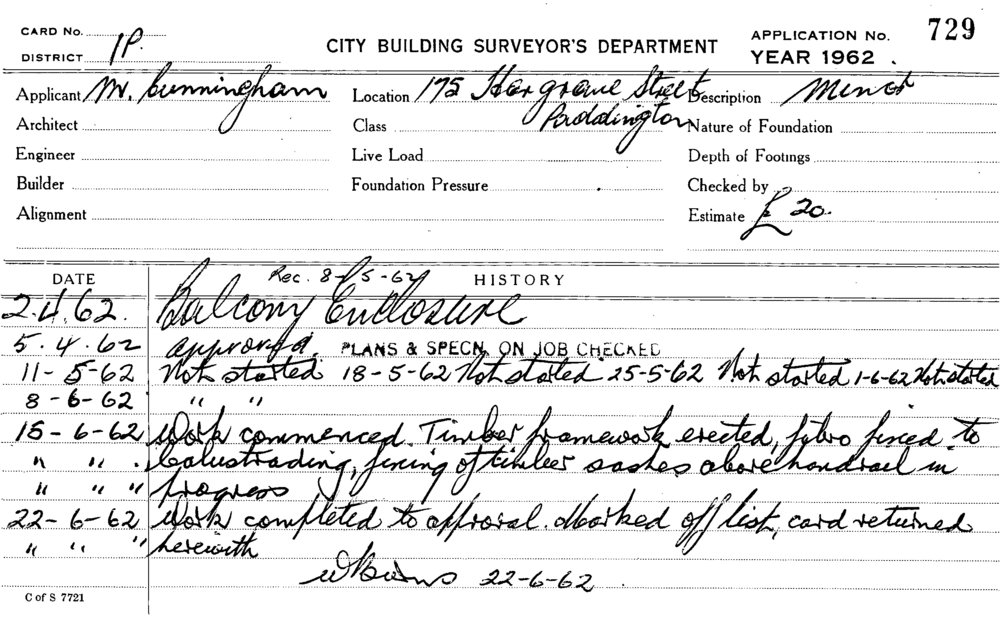 CARD No.
DISTRICT 1P.
CITY BUILDING SURVEYOR'S DEPARTMENT
APPLICATION No. 729
YEAR 1962.
Applicant W. Cunningham
Location 175 Hargrave Street
Paddington
Description Minor
Architect
Class
Nature of Foundation
Engineer
Live Load
Depth of Footings
Builder
Foundation Pressure
Checked by
Alignment
Estimate £ 20.
DATE
Rec. 8-5-62
HISTORY
2.4.62. Balcony Enclosure
5.4.62 approved. PLANS & SPECN. ON JOB CHECKED
11-5-62 Not started 18-5-62 Not started 25-5-62 Not started 1-6-62 Not started
8-6-62 " "
15-6-62 Work commenced. Timber framework erected, fibro fixed to
" " " balustrading, fixing of timber sashes above handrail in
" " " progress
22-6-62 Work completed to approval. Marked off list, card returned
" " " herewith
22-6-62.
C of S 7721